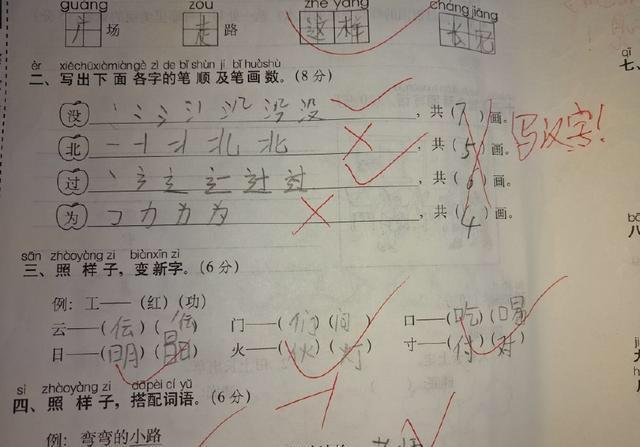 guǎng zǒu zhè yàng cháng jiāng
广 场 走 路 这 样 长
èr xiěchūxiàmiàngè zì de bǐ shùn jí bǐ huàshù
二、写出下面各字的笔顺及笔画数。(8分)
没 没 没,共(7)画。
北 北 北,共(5)画。 写汉字!
过 过,共(6)画。
为 为,共(4)画。
sān zhàoyàng zi biànxīn zì
三、照样子,变新字。(6分)
例:工——(红)(功)
云——(伝) 门——(们)(间) 口——(吃)(喝)
日——(明)(昌) 火——(伙)(灯) 寸——(付)(对)
sì zhàoyàng zi dāpèi cí yǔ
四、照样子,搭配词语。(6分)
例:弯弯的小路